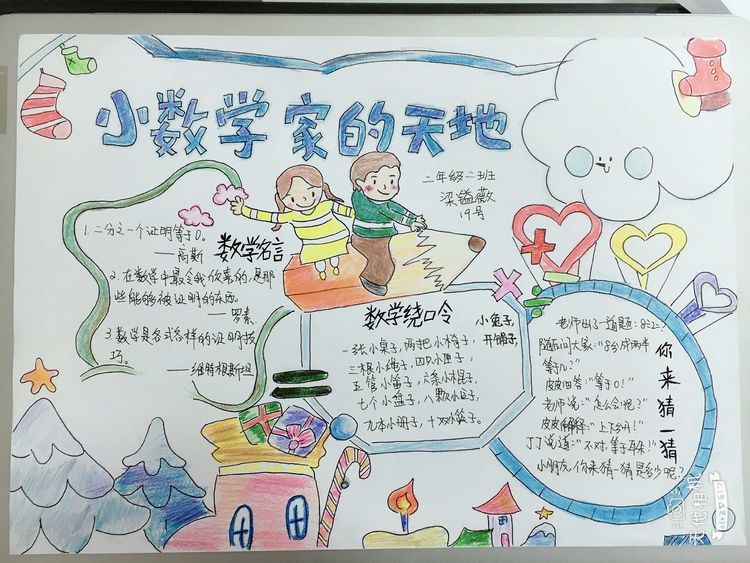 小数学家的天地
二年级二班
梁镒薇
19号
数学名言
1.二分之一个证明等于0。
——高斯
2.在数学中最令我欣喜的,是那
些能够被证明的东西。
——罗素
3.数学是各式各样的证明技
巧。
——维特根斯坦
数学绕口令
小兔子,
开铺子,
一张小桌子,两把小椅子,
三根小绳子,四只小匣子,
五管小笛子,六条小棍子,
七个小盘子,八颗小豆子,
九本小册子,十双小筷子。
你来猜一猜
老师出了一道题:8÷2=?
随后问大家:“8分成两半
等于几?”
皮皮回答:“等于0!”
老师说:“怎么会呢?”
皮皮解释:“上下分开!”
丁丁说道:“不对,等于耳朵!”
小朋友,你来猜一猜是多少呢?